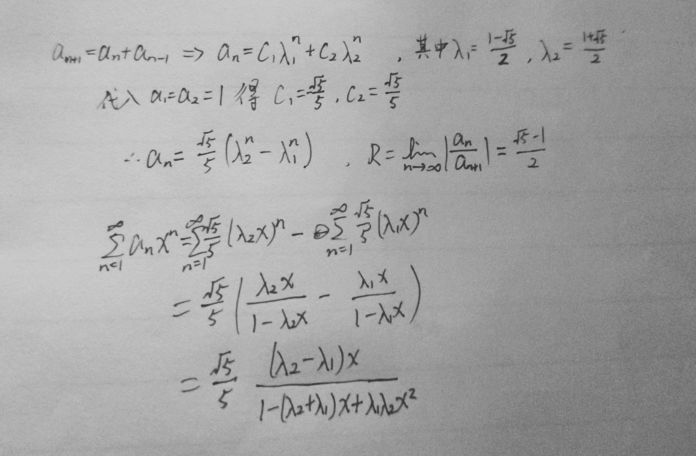 aₙ₊₁=aₙ+aₙ₋₁ ⇒ aₙ=C₁λ₁ⁿ+C₂λ₂ⁿ , 其中λ₁=(1-√5)/2 , λ₂=(1+√5)/2
代入 a₁=a₂=1 得 C₁=√5/5 , C₂=√5/5
∴aₙ=√5/5(λ₂ⁿ-λ₁ⁿ) , R=lim_{n→∞}|aₙ/aₙ₊₁|=(√5-1)/2
∑_{n=1}^{∞}aₙxⁿ=∑_{n=1}^{∞}√5/5(λ₂x)ⁿ-∑_{n=1}^{∞}√5/5(λ₁x)ⁿ
=√5/5(λ₂x/(1-λ₂x)-λ₁x/(1-λ₁x))
=√5/5 (λ₂-λ₁)x/(1-(λ₂+λ₁)x+λ₁λ₂x²)